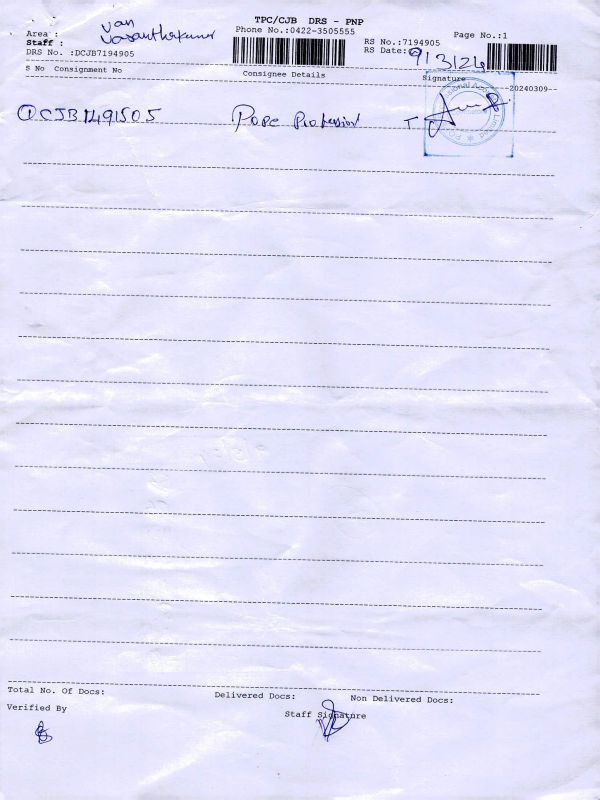 TPC/CJB DRS - PNP
Area : van
Phone No.:0422-3505555
Page No.:1
Staff : Vasanthakumar
RS No.:7194905
DRS No. :DCJB7194905
RS Date: 9/3/24
S No Consignment No
Consignee Details
Signature
--20240309--
① CJB1491505 Pope Profession T
Total No. Of Docs:
Delivered Docs:
Non Delivered Docs:
Verified By
Staff Signature